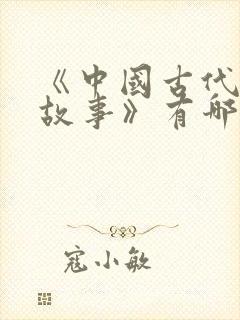 《中國古代
故事》有哪
寇小敏